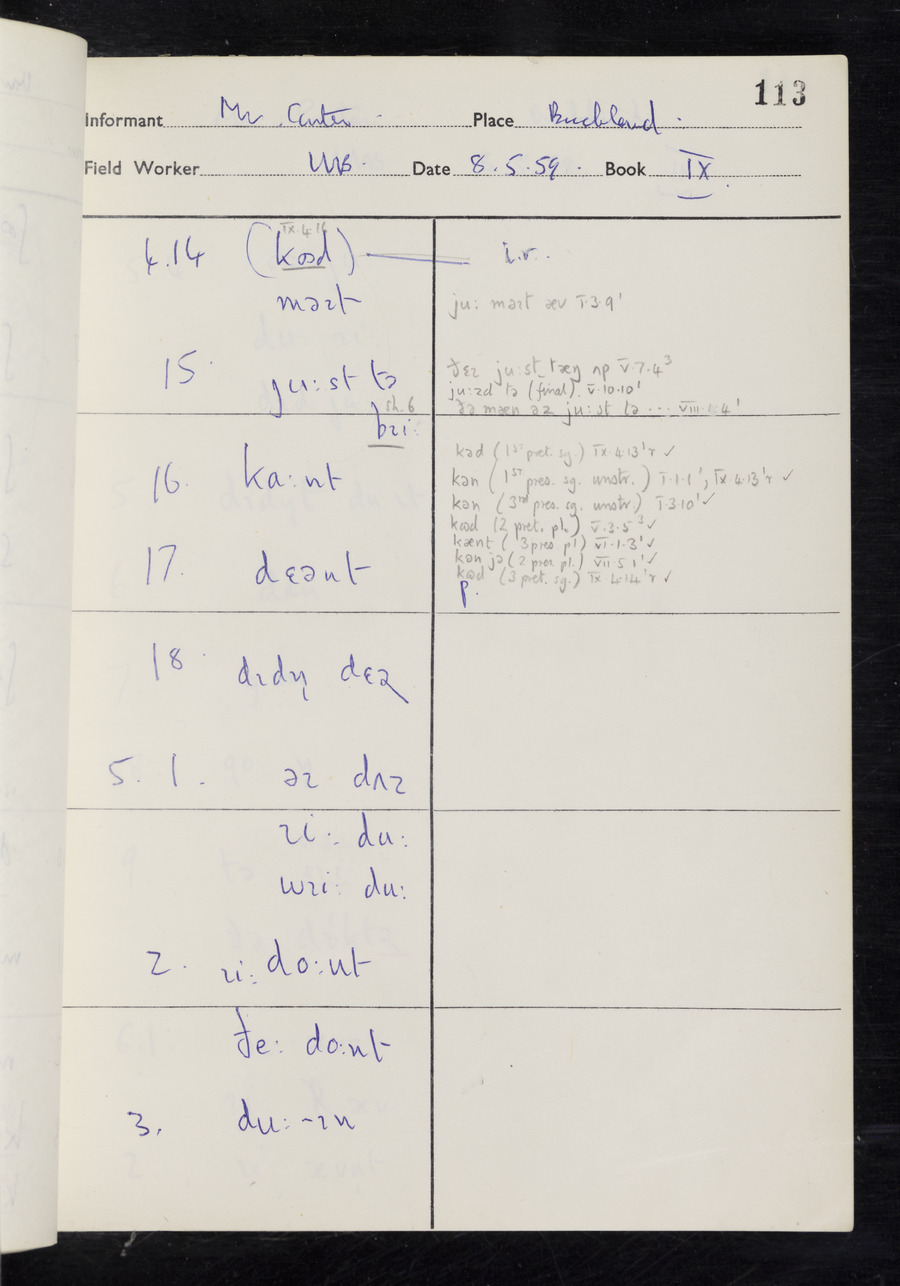 113
Informant Mr Carter. Place Buckland.
Field Worker Date 8.5.59. Book IX
4.14 (kɷd) i.r.
IX.4.16
məɪt ju: məɪt æv I.3.9'
15. ju:st tə
ju:zd tə (final). V.10.10'
sh.6
bɪi:
ðə mæn əz ju:st tə ... VIII
kəd (1ST pret. sg.) IX.4.13'r ✓
16. ka:nt kən (1ST pres. sg. unstr.) I.1.1', IX.4.13'r ✓
kən (3rd pres. sg. unstr.) I.3.10' ✓
kɷd (2 pret. pl.) V.3.5³ ✓
kænt (3 pres. pl) VI.1.3' ✓
17. dɛənt kən jə (2 pres. pl.) VII.5.1' ✓
kɷd (3 pret. sg.) IX.4.14'r ✓
p.
18.
5.1. əz dʌz
ɪi: du:
wɪi: du:
2. ɪi: do:nt
ðe: do:nt
3. du:-ɪn